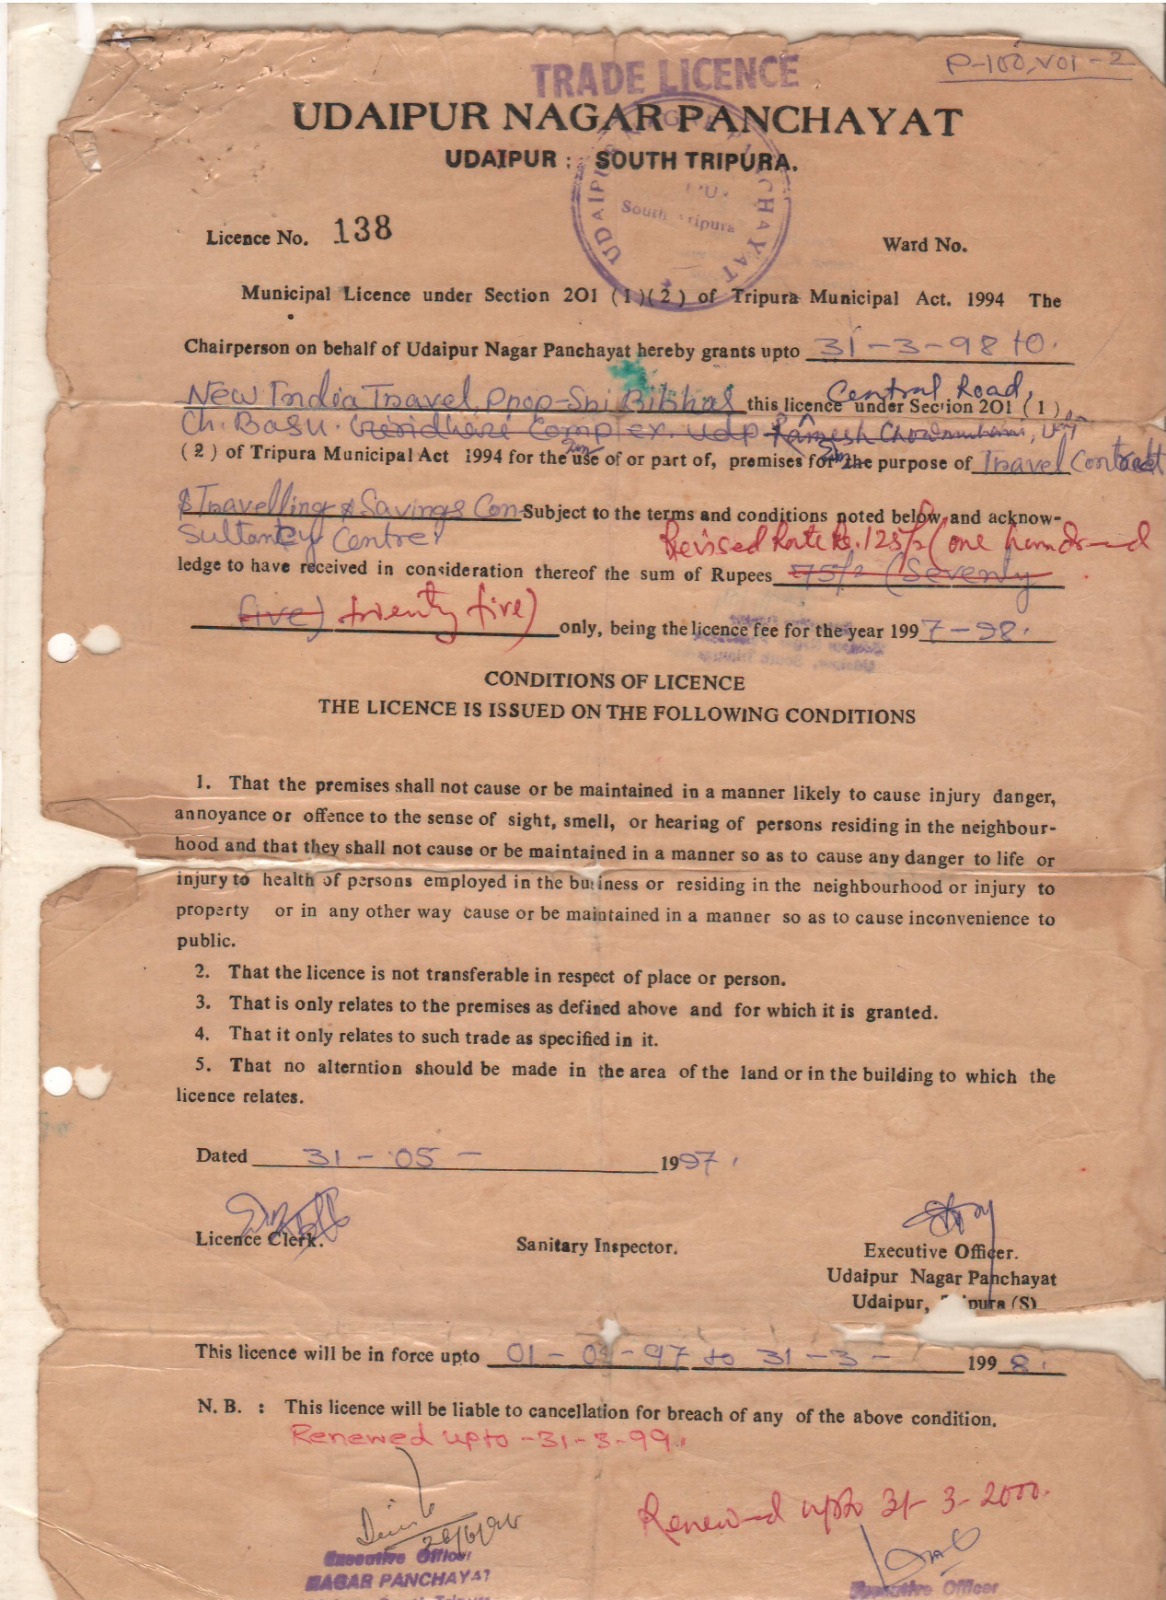 P-100, VOI - 2
TRADE LICENCE
UDAIPUR NAGAR PANCHAYAT
UDAIPUR : SOUTH TRIPURA.
UDAIPUR NAGAR PANCHAYAT
South Tripura
Licence No. 138
Ward No.
Municipal Licence under Section 201 (1)(2) of Tripura Municipal Act. 1994 The
Chairperson on behalf of Udaipur Nagar Panchayat hereby grants upto 31-3-98 to.
Central Road,
New India Travel, Prop-Sri Bibhas this licence under Section 201 (1)
Ch. Basu. Giridhari Complex. Udp Ramesh Chowmuhani,
(2) of Tripura Municipal Act 1994 for the use of or part of, premises for the purpose of Travel Contract
& Travelling & Savings Con- Subject to the terms and conditions noted below and acknow-
Sultancy Centre.
Revised Rate Rs. 125/= (one hundred
ledge to have received in consideration thereof the sum of Rupees 75/= (Seventy
five) twenty five) only, being the licence fee for the year 1997-98.
CONDITIONS OF LICENCE
THE LICENCE IS ISSUED ON THE FOLLOWING CONDITIONS
1. That the premises shall not cause or be maintained in a manner likely to cause injury danger,
annoyance or offence to the sense of sight, smell, or hearing of persons residing in the neighbour-
hood and that they shall not cause or be maintained in a manner so as to cause any danger to life or
injury to health of persons employed in the business or residing in the neighbourhood or injury to
property or in any other way cause or be maintained in a manner so as to cause inconvenience to
public.
2. That the licence is not transferable in respect of place or person.
3. That is only relates to the premises as defined above and for which it is granted.
4. That it only relates to such trade as specified in it.
5. That no alterntion should be made in the area of the land or in the building to which the
licence relates.
Dated 31 - 05 - 1997.
Licence Clerk.
Sanitary Inspector.
Executive Officer.
Udaipur Nagar Panchayat
Udaipur, Tripura (S)
This licence will be in force upto 01-04-97 to 31-3- 1998.
N. B. : This licence will be liable to cancellation for breach of any of the above condition.
Renewed upto -31-3-99.
Renewed upto 31-3-2000.
Executive Officer
NAGAR PANCHAYAT
Executive Officer